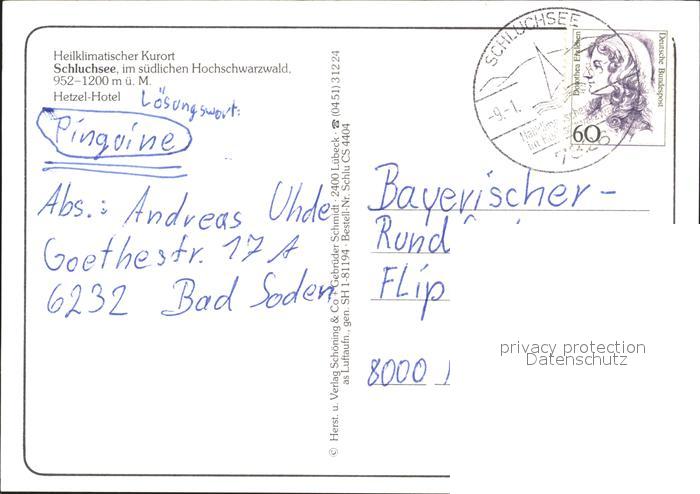 Heilklimatischer Kurort
Schluchsee, im südlichen Hochschwarzwald,
952–1200 m ü. M.
Hetzel-Hotel
Lösungswort:
Pinguine
Abs.: Andreas Uhde
Goethestr. 17 A
6232 Bad Soden
© Herst. u. Verlag Schöning & Co + Gebrüder Schmidt · 2400 Lübeck · ☎ (04 51) 3 12 24
as Luftaufn., gen. SH 1-81194 · Bestell-Nr. Schlu CS 4404
SCHLUCHSEE
-9.-1.
Dorothea Erxleben
Deutsche Bundespost
60
Bayerischer-
Rund
FLip
8000
privacy protection
Datenschutz